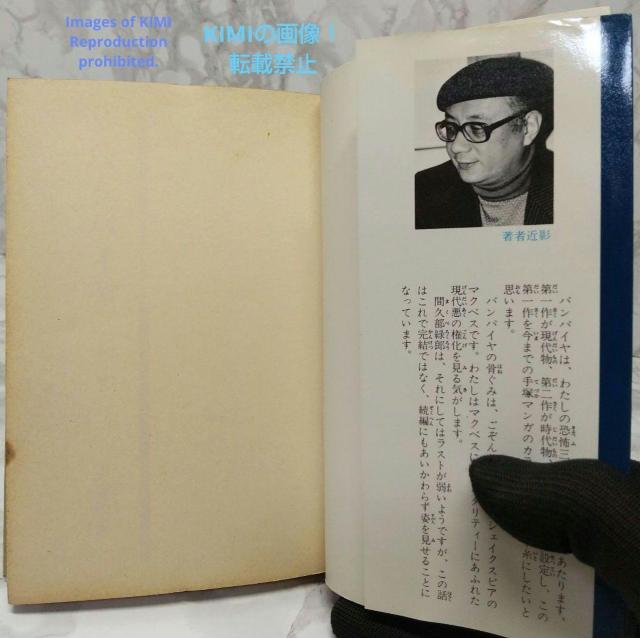 Images of KIMI
Reproduction
prohibited.
KIMIの画像！
転載禁止
著者近影
バンパイヤは、わたしの恐怖三 あたります。
第一作が現代物、第二作が時代物、 設定し、この
第一作を今までの手塚マンガのカラ 糸にしたいと
思います。
バンパイヤの骨ぐみは、ごぞん シェイクスピアの
マクベスです。わたしはマクベスに、 タリティーにあふれた
現代悪の権化を見る気がします。
間久部緑郎は、それにしてはラストが弱いようですが、この話
はこれで完結ではなく、続編にもあいかわらず姿を見せることに
なっています。